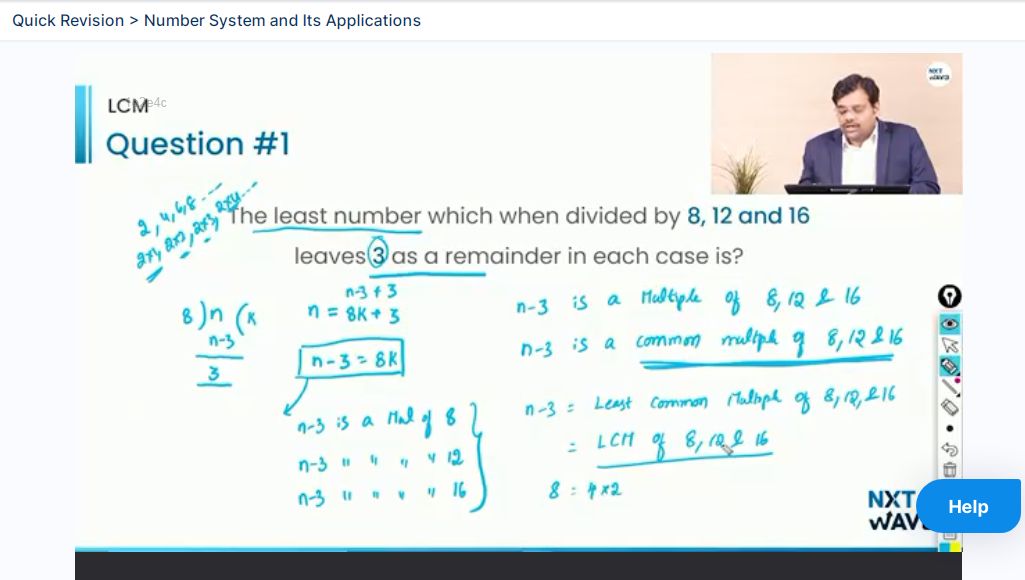 Quick Revision > Number System and Its Applications
LCM
Question #1
NXT
WAVE
2, 4, 6, 8 ...
2×1, 2×2, 2×3, 2×4 ...
The least number which when divided by 8, 12 and 16
leaves 3 as a remainder in each case is?
8)n(K
n-3
3
n-3+3
n = 8K+3
n-3 = 8K
n-3 is a Mul of 8
n-3 " " " " 12
n-3 " " " " 16
n-3 is a Multiple of 8, 12 & 16
n-3 is a common multiple of 8, 12 & 16
n-3 = Least Common Multiple of 8, 12, & 16
= LCM of 8, 12 & 16
8 = 4×2
NXT
WAV
Help